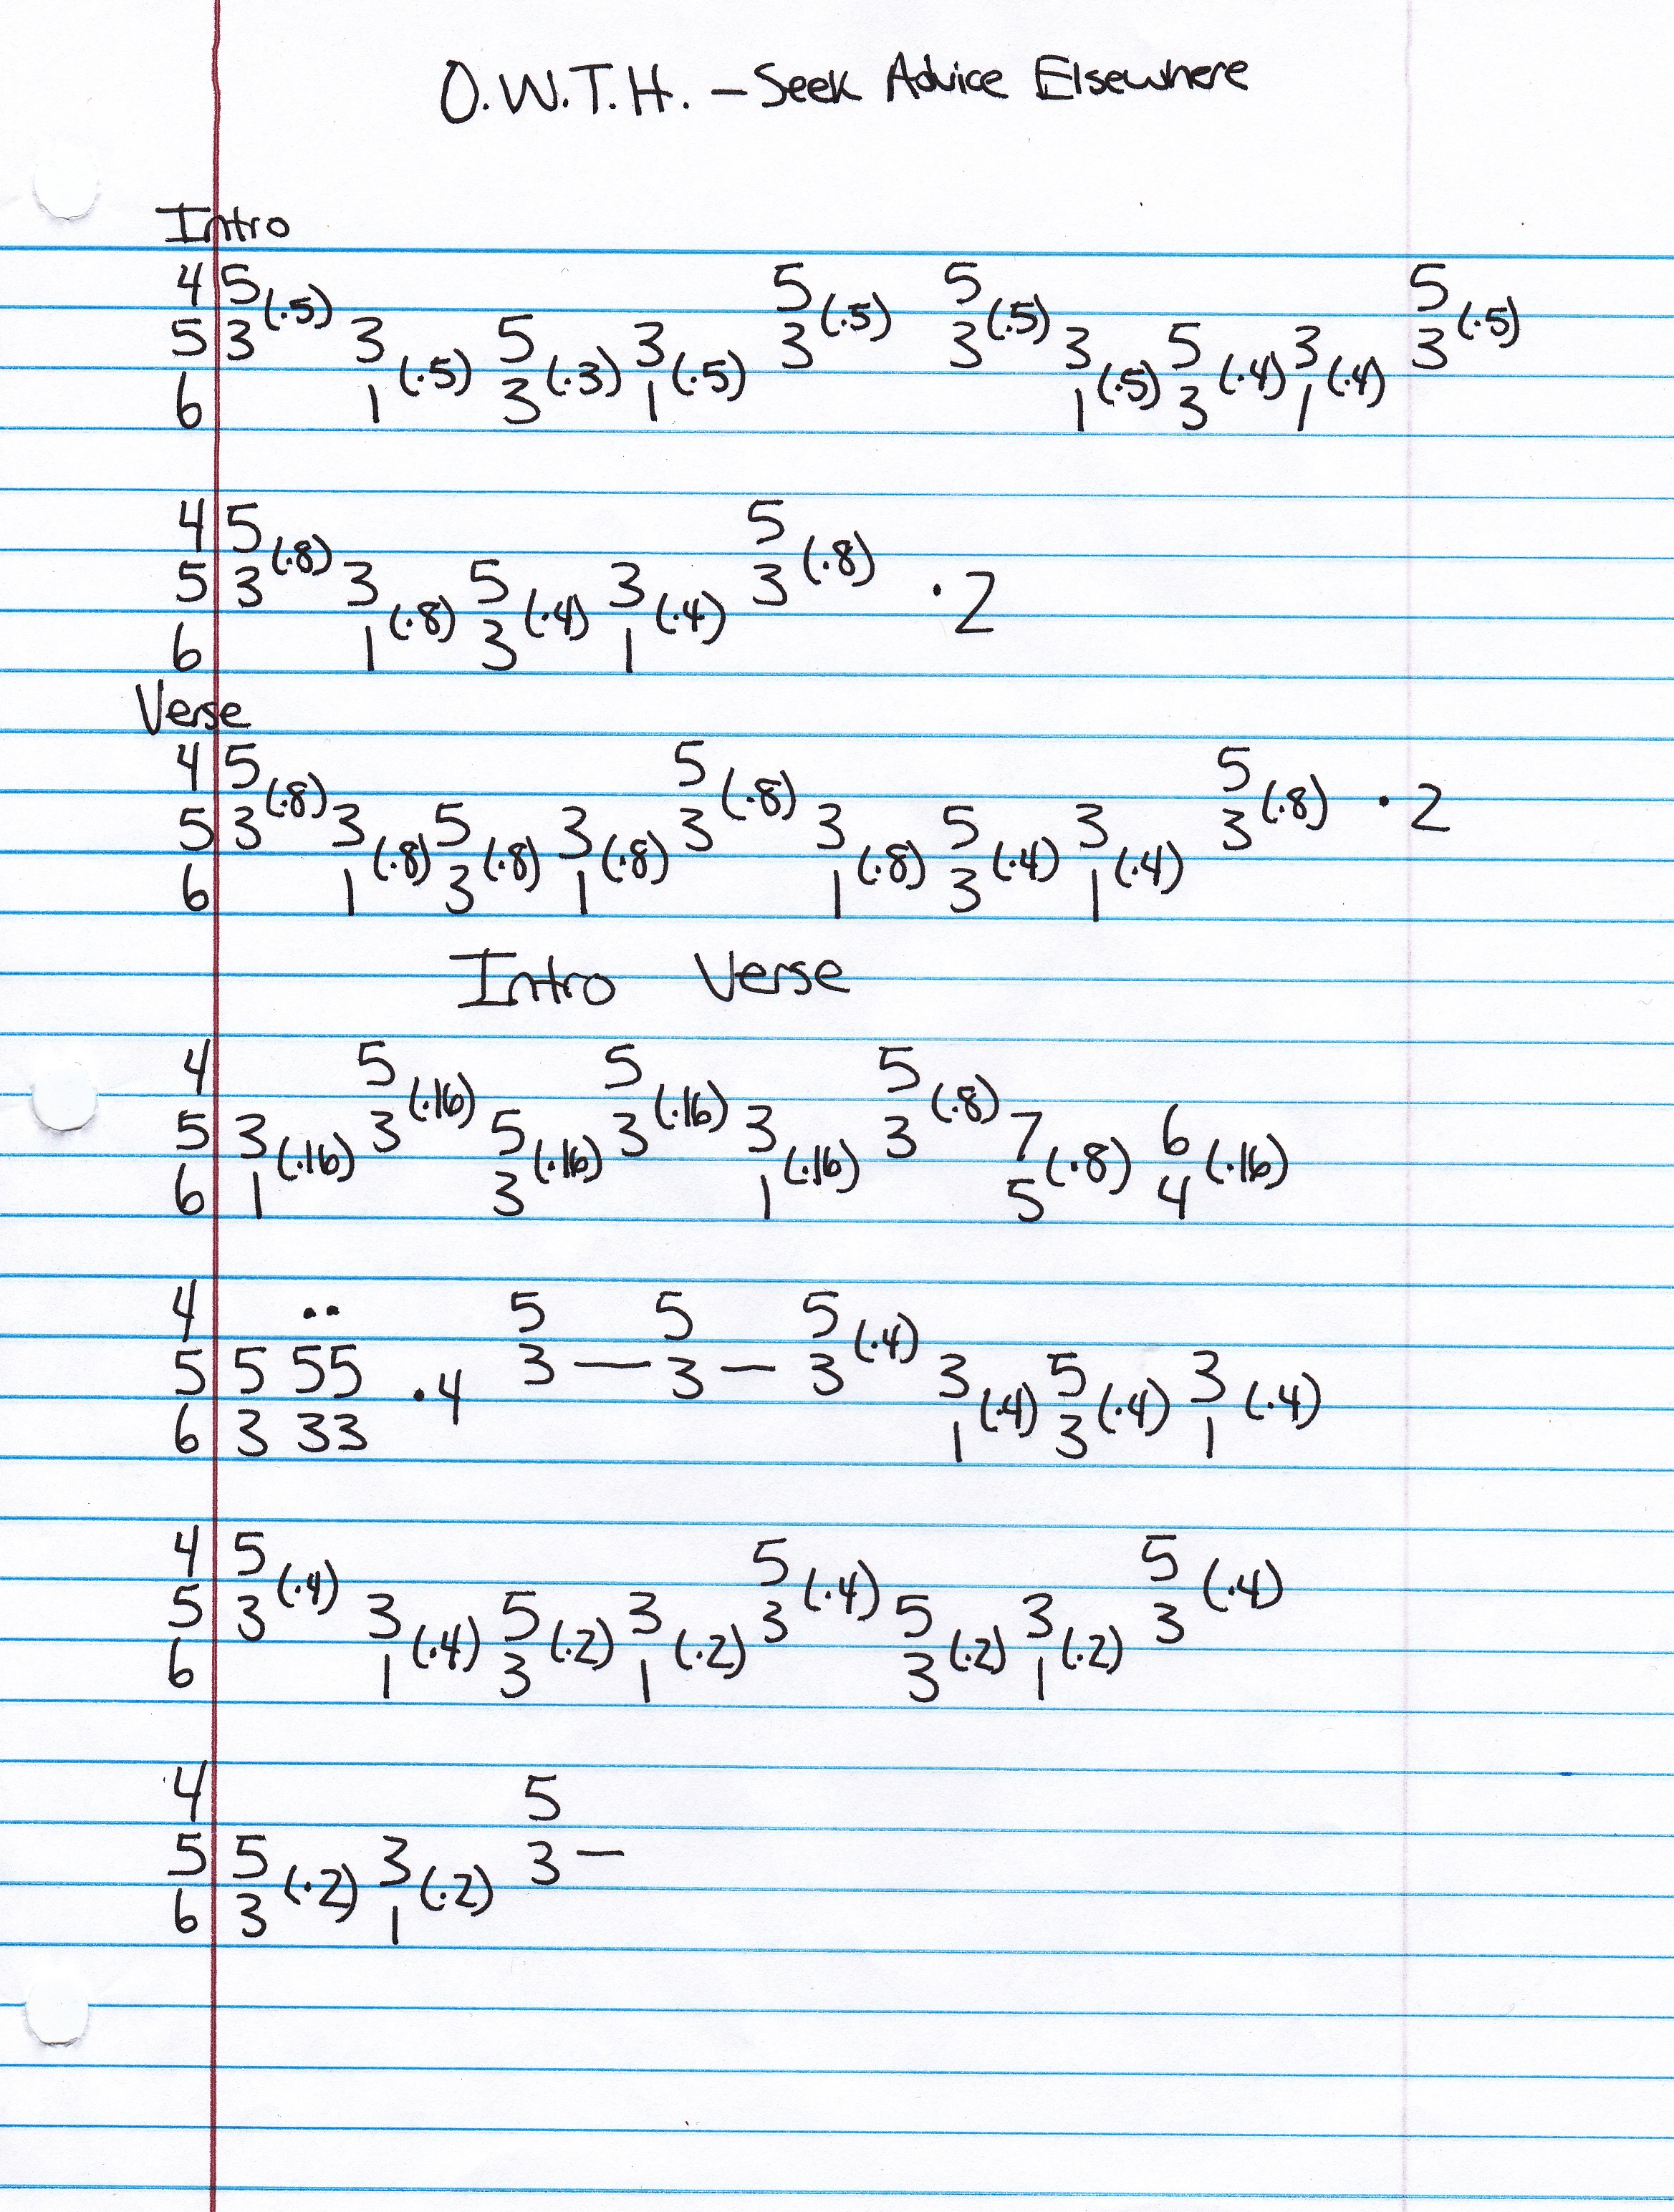 O.W.T.H. – Seek Advice Elsewhere
Intro
4 5 5 5 5
5 3 (·5) 3 5 3 3 (·5) 3 (·5) 3 5 3 3 (·5)
6 1 (·5) 3 (·3) 1 (·5) 1 (·5) 3 (·4) 1 (·4)
4 5 5
5 3 (·8) 3 5 3 3 (·8) ·2
6 1 (·8) 3 (·4) 1 (·4)
Verse
4 5 5 5
5 3 (·8) 3 5 3 3 (·8) 3 5 3 3 (·8) ·2
6 1 (·8) 3 (·8) 1 (·8) 1 (·8) 3 (·4) 1 (·4)
Intro Verse
4 5 5 5
5 3 3 (·16) 5 3 (·16) 3 3 (·8) 7 6
6 1 (·16) 3 (·16) 1 (·16) 5 (·8) 4 (·16)
4 ·· 5 5 5
5 5 55 ·4 3 — 3 – 3 (·4) 3 5 3
6 3 33 1 (·4) 3 (·4) 1 (·4)
4 5 5 5
5 3 (·4) 3 5 3 3 (·4) 5 3 3 (·4)
6 1 (·4) 3 (·2) 1 (·2) 3 (·2) 1 (·2)
4 5
5 5 3 3 –
6 3 (·2) 1 (·2)